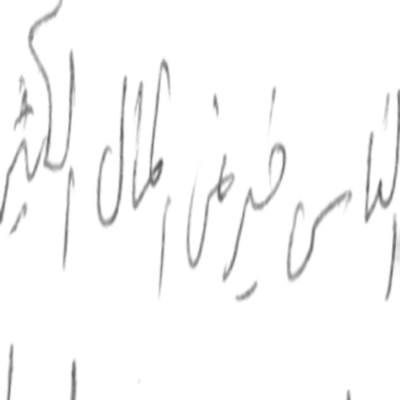 الناس خير من المال الكثير